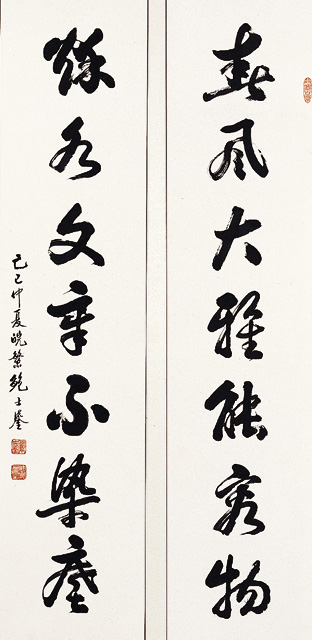 春風大雅能容物
秋水文章不染塵
己巳仲夏皖繁鮑士